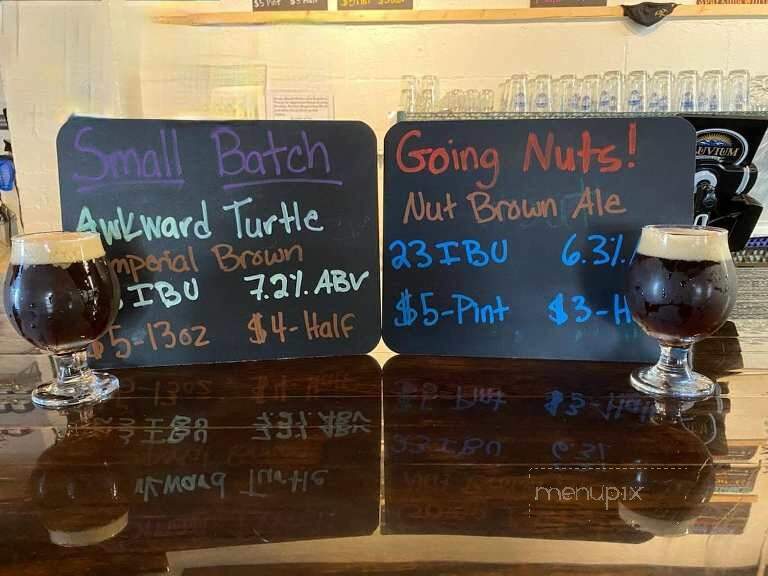 Small Batch
Awkward Turtle
Imperial Brown
IBU 7.2% ABV
$5-13oz $4-Half
Going Nuts!
Nut Brown Ale
23 IBU 6.3%
$5-Pint $3-H
menupix